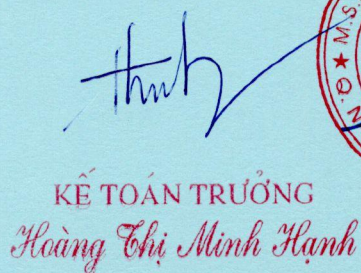 KẾ TOÁN TRƯỞNG
Hoàng Thị Minh Hạnh
★ M.S.